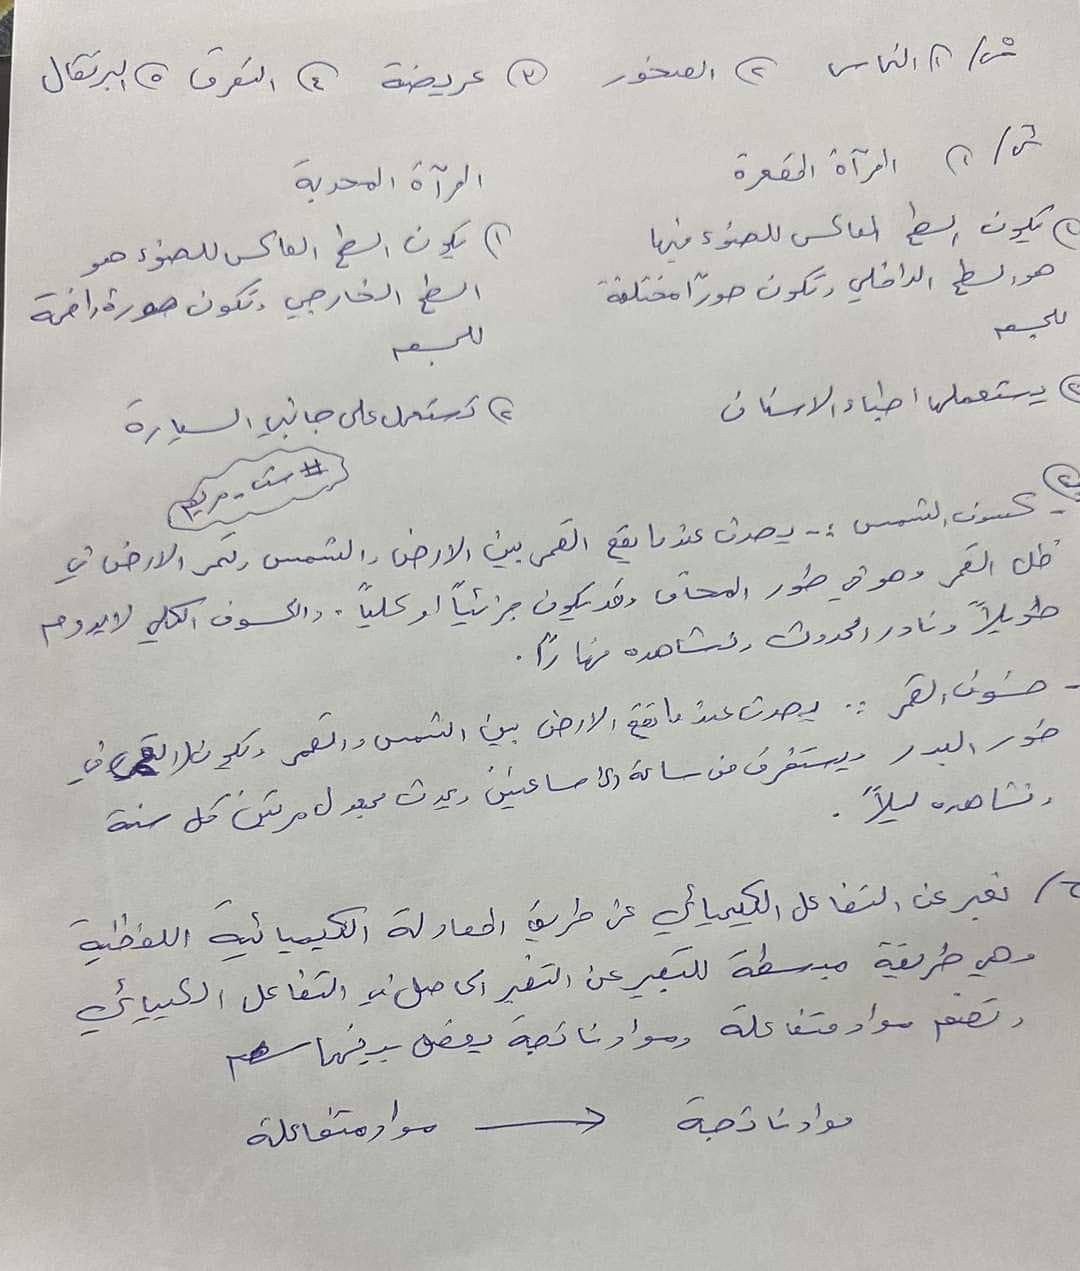 س١/ ١) الماس ٢) الصخور ٣) عريضة ٤) التعرق ٥) البرتقال
س٢/ ١) المرآة المقعرة المرآة المحدبة
١) تكون السطح العاكس للضوء فيها ١) يكون السطح العاكس للضوء هو
هو السطح الداخلي وتكون صوراً مختلفة السطح الخارجي وتكون صورة واضحة
للجسم للجسم
٢) يستعملها اطباء الاسنان ٢) تستعمل على جانبي السيارة
#ست_مريم
٢)
- كسوف الشمس :- يحدث عندما يقع القمر بين الارض والشمس وتمر الارض في
ظل القمر وهو في طور المحاق وقد يكون جزئياً او كلياً . والكسوف الكلي لا يدوم
طويلاً ونادر الحدوث ونشاهده نهاراً .
- خسوف القمر :. يحدث عندما تقع الارض بين الشمس والقمر ويكون القمر في
طور البدر ويستغرق من ساعة الى ساعتين ويحدث بمعدل مرتين كل سنة
ونشاهده ليلاً .
ج/ نعبر عن التفاعل الكيميائي عن طريق المعادلة الكيميائية اللفظية
وهي طريقة مبسطة للتعبير عن التغير الحاصل في التفاعل الكيميائي
وتضم مواد متفاعلة ومواد ناتجة يفصل بينهما سهم
مواد متفاعلة → مواد ناتجة